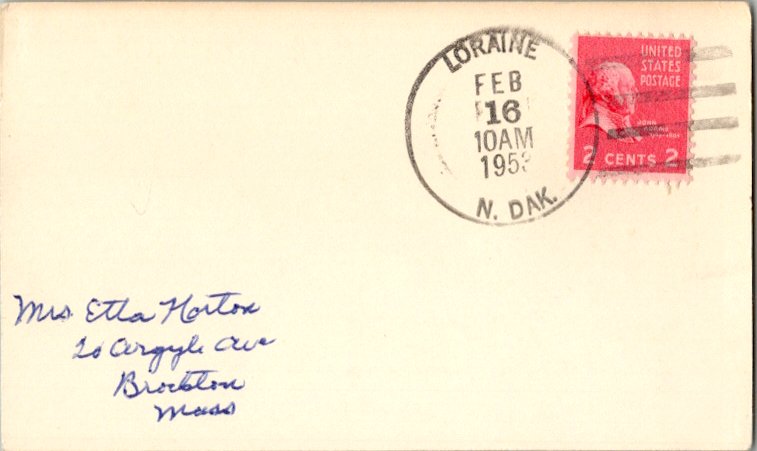 LORAINE
FEB
16
10AM
1953
N. DAK.
UNITED
STATES
POSTAGE
JOHN
2 CENTS 2
Mrs Etta Horton
20 Argyle Ave
Brockton
Mass